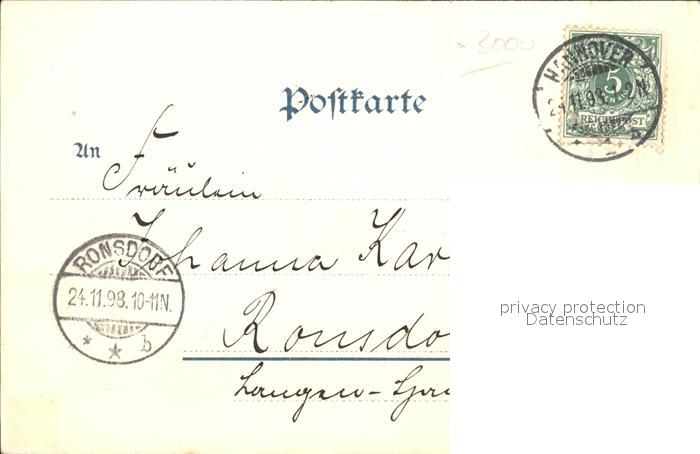 × 3000
Postkarte
HANNOVER
24.11.98. 1-2N.
5
REICHSPOST
b
An
Fräulein
Johanna Kar
RONSDORF
24.11.98. 10-11N.
* * b
Ronsdo
Langen-
privacy protection
Datenschutz